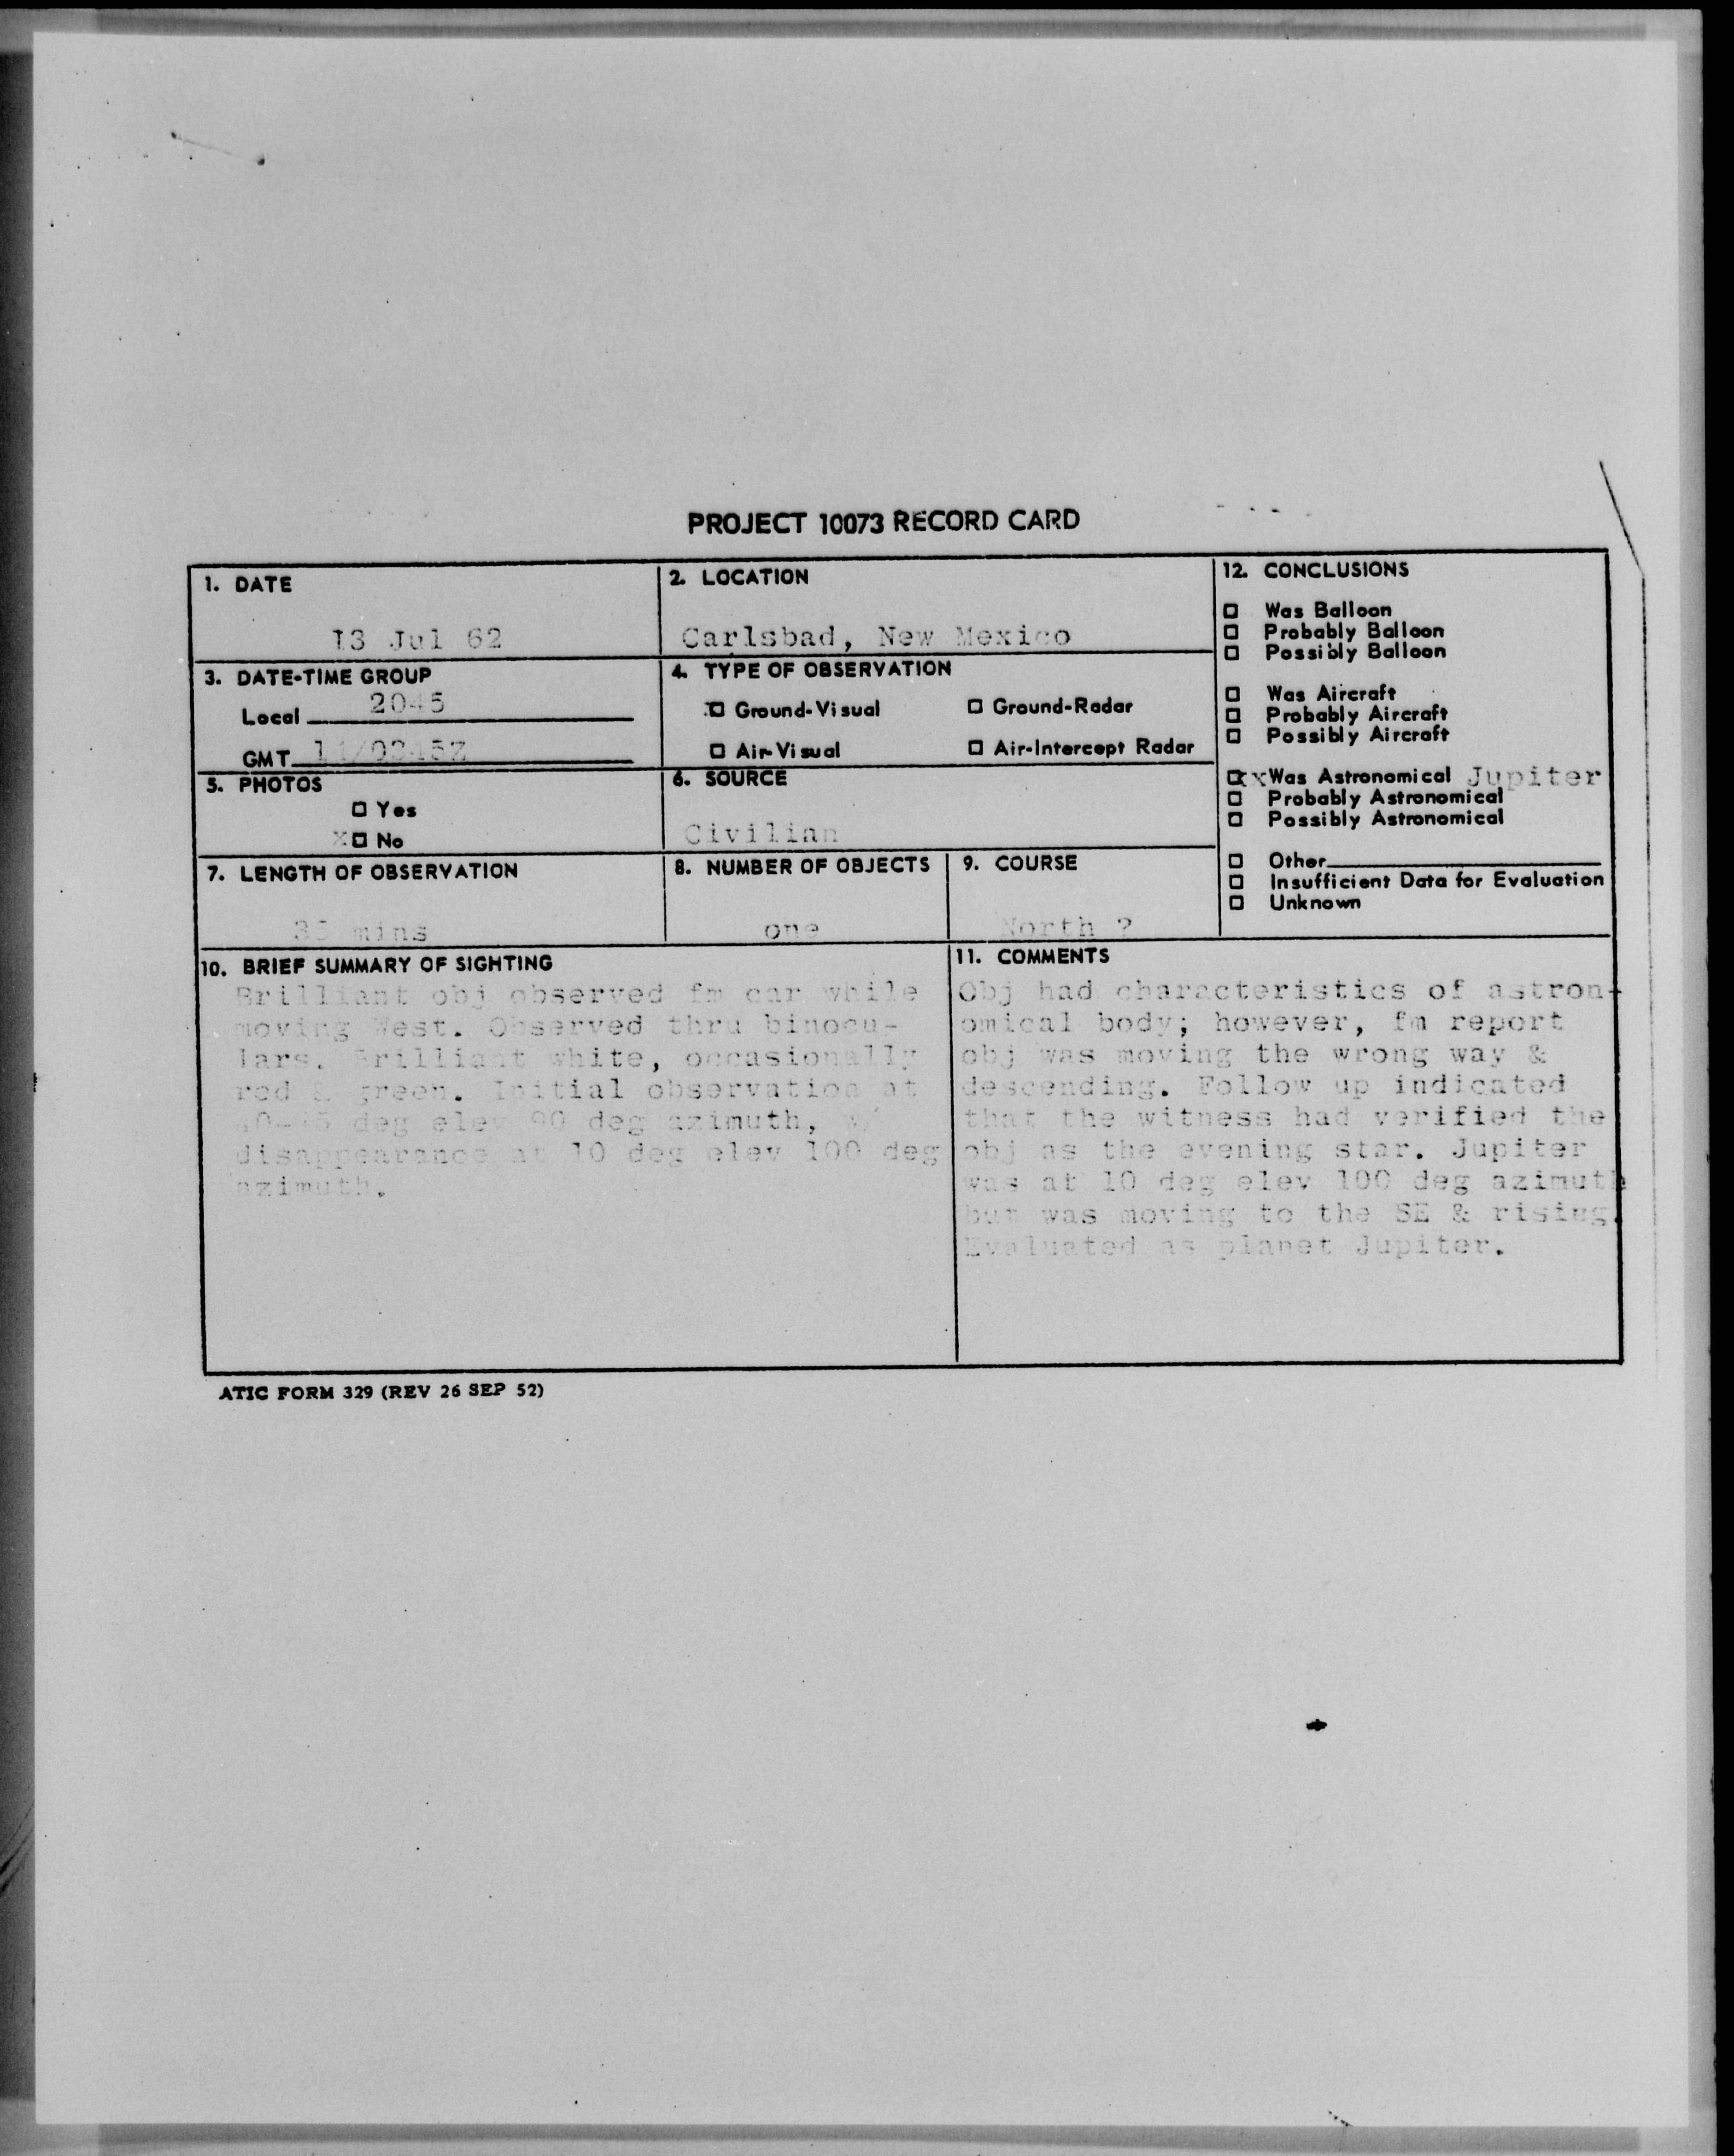 PROJECT 10073 RECORD CARD
1. DATE
13 Jul 62
2. LOCATION
Carlsbad, New Mexico
3. DATE-TIME GROUP
Local 2045
GMT 14/0345Z
4. TYPE OF OBSERVATION
x☐ Ground-Visual ☐ Ground-Radar
☐ Air-Visual ☐ Air-Intercept Radar
5. PHOTOS
☐ Yes
x☐ No
6. SOURCE
Civilian
7. LENGTH OF OBSERVATION
mins
8. NUMBER OF OBJECTS
one
9. COURSE
North ?
10. BRIEF SUMMARY OF SIGHTING
Brilliant obj observed fm car while
moving West. Observed thru binocu-
lars. Brilliant white, occasionally
red & green. Initial observation at
deg elev 90 deg azimuth, w/
disappearance at 10 deg elev 100 deg
azimuth.
11. COMMENTS
Obj had characteristics of astron-
omical body; however, fm report
obj was moving the wrong way &
descending. Follow up indicated
that the witness had verified the
obj as the evening star. Jupiter
was at 10 deg elev 100 deg azimuth
but was moving to the SE & rising.
Evaluated as planet Jupiter.
12. CONCLUSIONS
☐ Was Balloon
☐ Probably Balloon
☐ Possibly Balloon
☐ Was Aircraft
☐ Probably Aircraft
☐ Possibly Aircraft
☐xx Was Astronomical Jupiter
☐ Probably Astronomical
☐ Possibly Astronomical
☐ Other
☐ Insufficient Data for Evaluation
☐ Unknown
ATIC FORM 329 (REV 26 SEP 52)